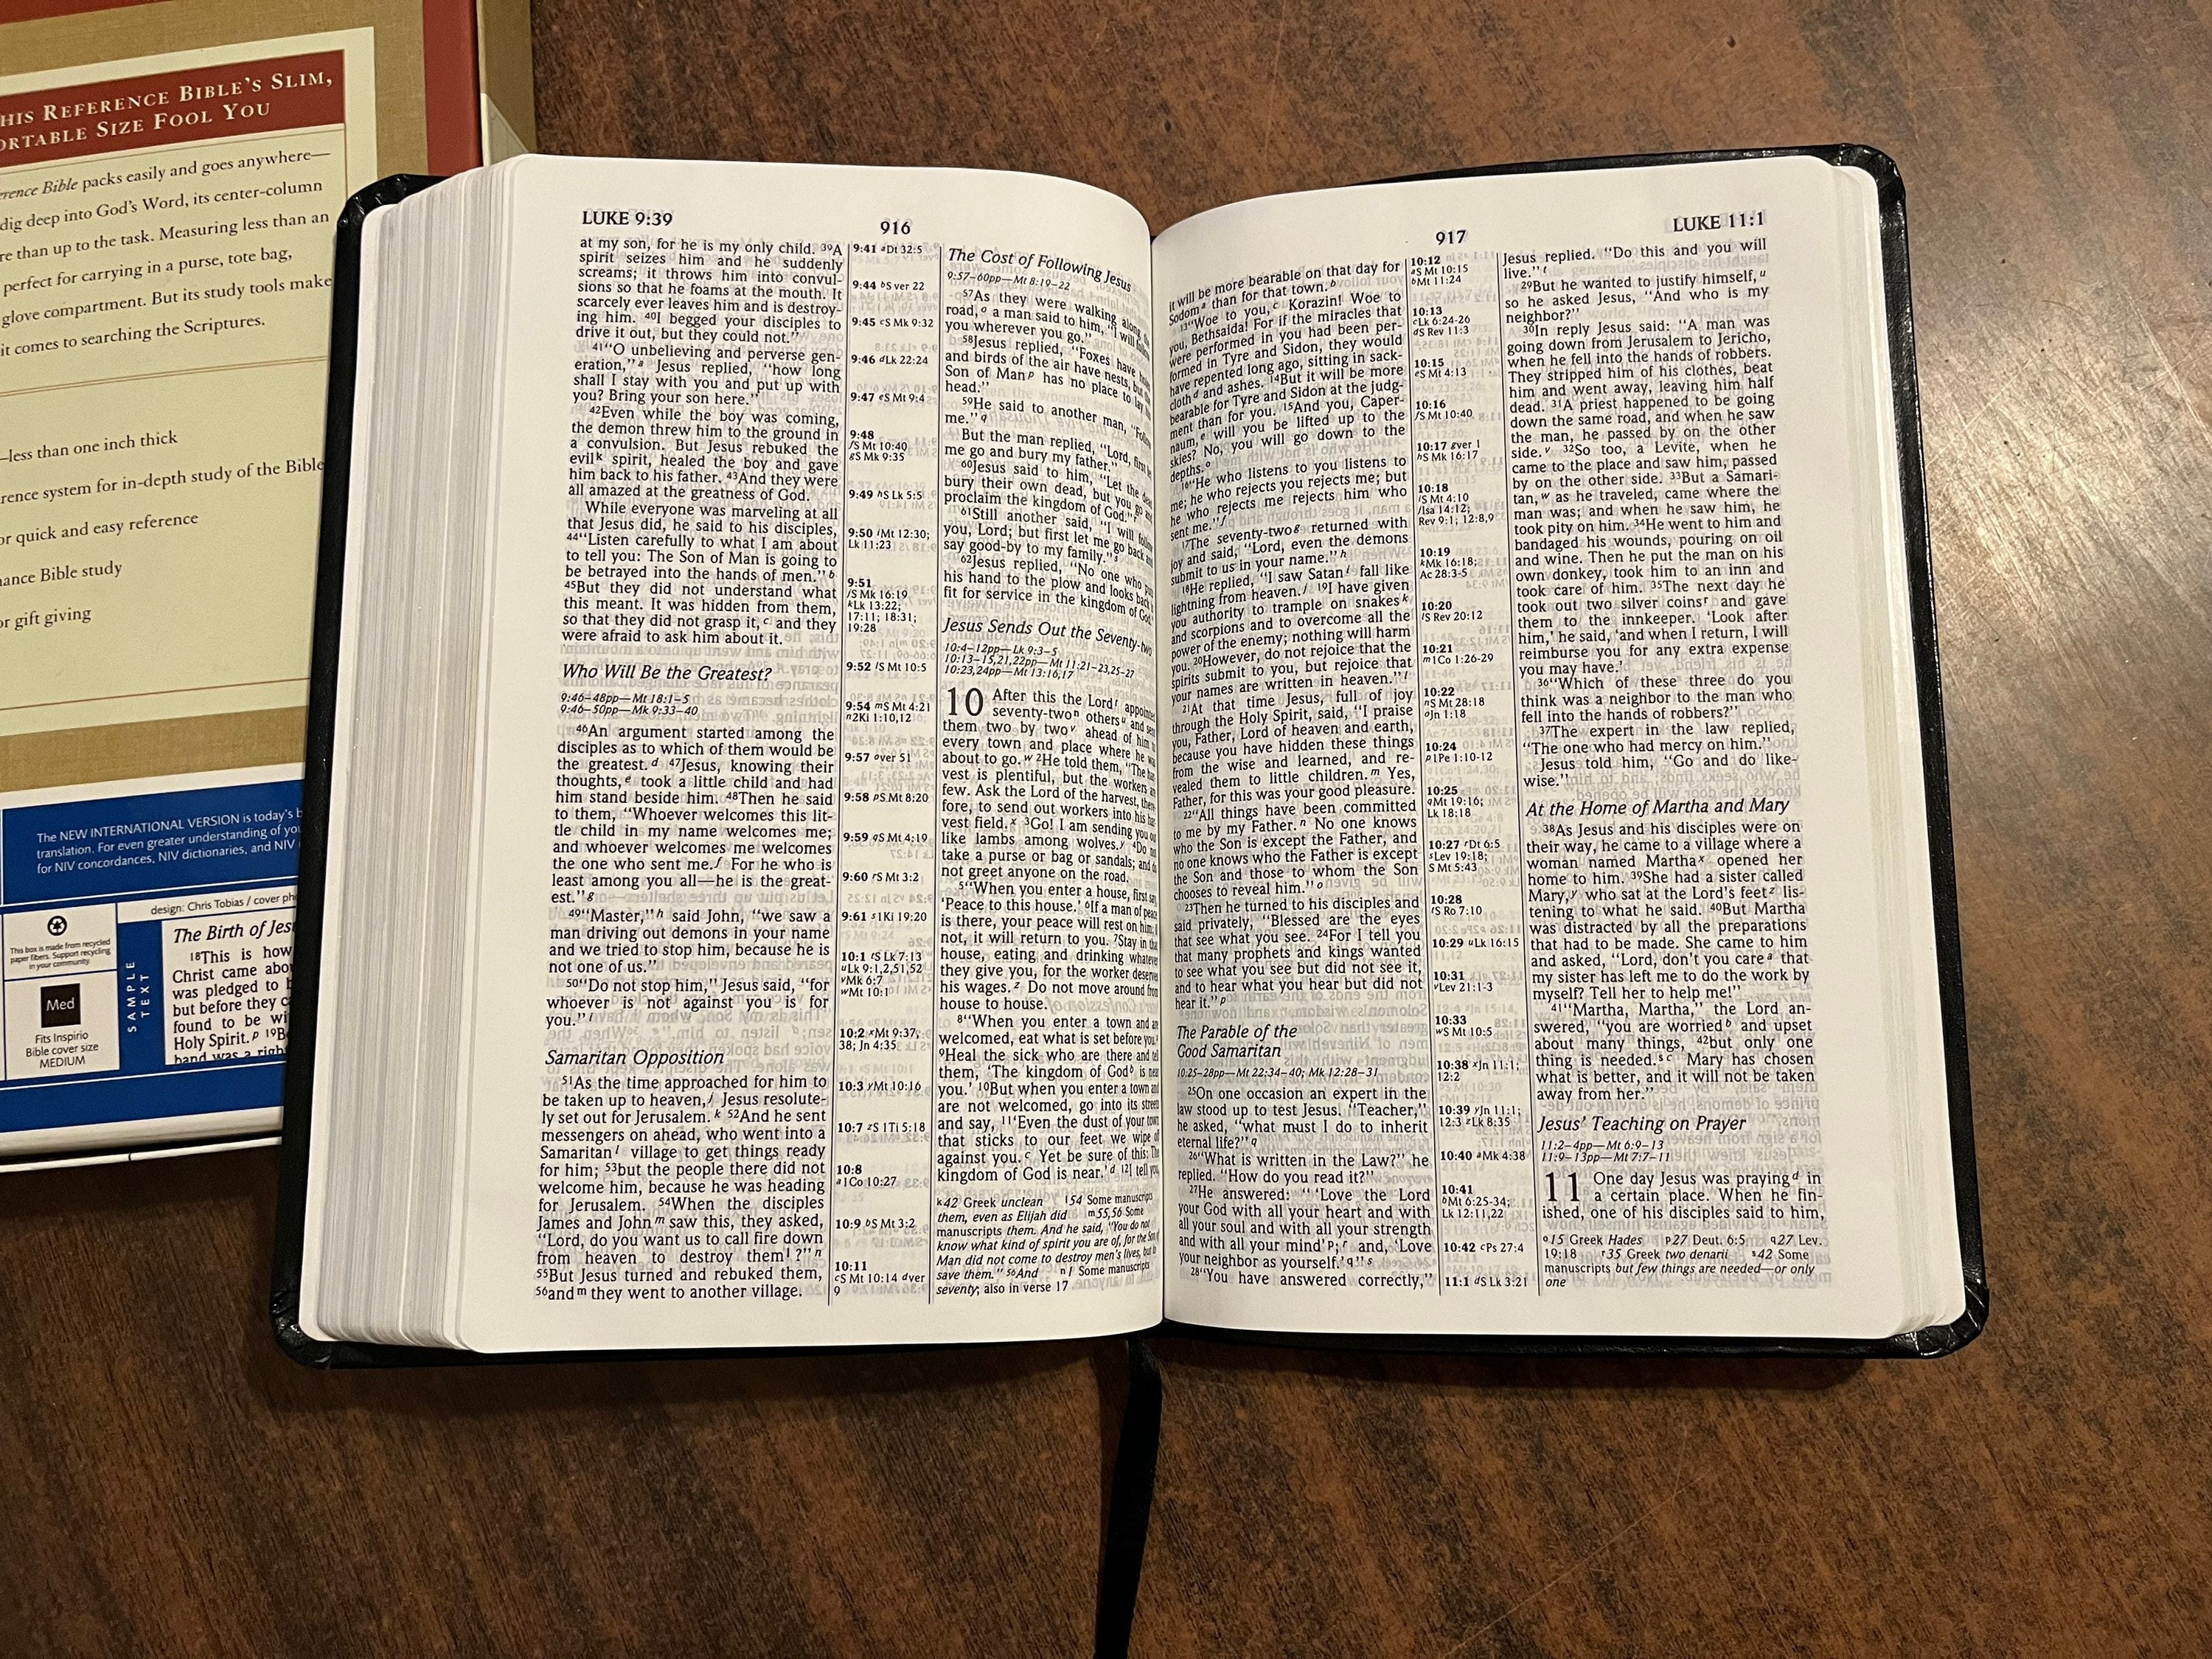 HIS REFERENCE BIBLE'S SLIM,
ORTABLE SIZE FOOL YOU
rence Bible packs easily and goes anywhere—
dig deep into God's Word, its center-column
re than up to the task. Measuring less than an
perfect for carrying in a purse, tote bag,
glove compartment. But its study tools make
it comes to searching the Scriptures.
—less than one inch thick
rence system for in-depth study of the Bible
or quick and easy reference
nance Bible study
or gift giving
The NEW INTERNATIONAL VERSION is today's b
translation. For even greater understanding of you
for NIV concordances, NIV dictionaries, and NIV
design: Chris Tobias / cover ph
This box is made from recycled
paper fibers. Support recycling
in your community.
Med
Fits Inspirio
Bible cover size
MEDIUM
SAMPLE
TEXT
The Birth of Jes
18This is how
Christ came abo
was pledged to b
but before they c
found to be wi
Holy Spirit.p 19B
band was a righ
LUKE 9:39
916
at my son, for he is my only child. 39A
spirit seizes him and he suddenly
screams; it throws him into convul-
sions so that he foams at the mouth. It
scarcely ever leaves him and is destroy-
ing him. 40I begged your disciples to
drive it out, but they could not."
41"O unbelieving and perverse gen-
eration,"a Jesus replied, "how long
shall I stay with you and put up with
you? Bring your son here."
42Even while the boy was coming,
the demon threw him to the ground in
a convulsion. But Jesus rebuked the
evilk spirit, healed the boy and gave
him back to his father. 43And they were
all amazed at the greatness of God.
While everyone was marveling at all
that Jesus did, he said to his disciples,
44"Listen carefully to what I am about
to tell you: The Son of Man is going to
be betrayed into the hands of men."b
45But they did not understand what
this meant. It was hidden from them,
so that they did not grasp it,c and they
were afraid to ask him about it.
Who Will Be the Greatest?
9:46–48pp—Mt 18:1–5
9:46–50pp—Mk 9:33–40
46An argument started among the
disciples as to which of them would be
the greatest.d 47Jesus, knowing their
thoughts,e took a little child and had
him stand beside him. 48Then he said
to them, "Whoever welcomes this lit-
tle child in my name welcomes me;
and whoever welcomes me welcomes
the one who sent me.f For he who is
least among you all—he is the great-
est."g
49"Master,"h said John, "we saw a
man driving out demons in your name
and we tried to stop him, because he is
not one of us."
50"Do not stop him," Jesus said, "for
whoever is not against you is for
you."i
Samaritan Opposition
51As the time approached for him to
be taken up to heaven,j Jesus resolute-
ly set out for Jerusalem.k 52And he sent
messengers on ahead, who went into a
Samaritanl village to get things ready
for him; 53but the people there did not
welcome him, because he was heading
for Jerusalem. 54When the disciples
James and Johnm saw this, they asked,
"Lord, do you want us to call fire down
from heaven to destroy theml?"n
55But Jesus turned and rebuked them,
56andm they went to another village.
9:41 aDt 32:5
9:44 bS ver 22
9:45 cS Mk 9:32
9:46 dLk 22:24
9:47 eS Mt 9:4
9:48
fS Mt 10:40
gS Mk 9:35
9:49 hS Lk 5:5
9:50 iMt 12:30;
Lk 11:23
9:51
jS Mk 16:19
kLk 13:22;
17:11; 18:31;
19:28
9:52 lS Mt 10:5
9:54 mS Mt 4:21
n2Ki 1:10,12
9:57 over 51
9:58 pS Mt 8:20
9:59 qS Mt 4:19
9:60 rS Mt 3:2
9:61 s1Ki 19:20
10:1 tS Lk 7:13
uLk 9:1,2,51,52
vMk 6:7
wMt 10:1
10:2 xMt 9:37,
38; Jn 4:35
10:3 yMt 10:16
10:7 zS 1Ti 5:18
10:8
a1Co 10:27
10:9 bS Mt 3:2
10:11
cS Mt 10:14 dver
9
The Cost of Following Jesus
9:57–60pp—Mt 8:19–22
57As they were walking along the
road,o a man said to him, "I will follow
you wherever you go."
58Jesus replied, "Foxes have holes
and birds of the air have nests, but the
Son of Manp has no place to lay his
head."
59He said to another man, "Follow
me."q
But the man replied, "Lord, first let
me go and bury my father."
60Jesus said to him, "Let the dead
bury their own dead, but you go and
proclaim the kingdom of God."r
61Still another said, "I will follow
you, Lord; but first let me go back and
say good-by to my family."s
62Jesus replied, "No one who puts
his hand to the plow and looks back is
fit for service in the kingdom of God."
Jesus Sends Out the Seventy-two
10:4–12pp—Lk 9:3–5
10:13–15,21,22pp—Mt 11:21–23,25–27
10:23,24pp—Mt 13:16,17
10 After this the Lordt appointed
seventy-twon othersu and sent
them two by twov ahead of him to
every town and place where he was
about to go.w 2He told them, "The har-
vest is plentiful, but the workers are
few. Ask the Lord of the harvest, there-
fore, to send out workers into his har-
vest field.x 3Go! I am sending you out
like lambs among wolves.y 4Do not
take a purse or bag or sandals; and do
not greet anyone on the road.
5"When you enter a house, first say,
'Peace to this house.' 6If a man of peace
is there, your peace will rest on him; if
not, it will return to you. 7Stay in that
house, eating and drinking whatever
they give you, for the worker deserves
his wages.z Do not move around from
house to house.
8"When you enter a town and are
welcomed, eat what is set before you.a
9Heal the sick who are there and tell
them, 'The kingdom of Godb is near
you.' 10But when you enter a town and
are not welcomed, go into its streets
and say, 11'Even the dust of your town
that sticks to our feet we wipe off
against you.c Yet be sure of this: The
kingdom of God is near.'d 12I tell you,
k42 Greek unclean l54 Some manuscripts
them, even as Elijah did m55,56 Some
manuscripts them. And he said, "You do not
know what kind of spirit you are of, for the Son of
Man did not come to destroy men's lives, but to
save them." 56And n1 Some manuscripts
seventy; also in verse 17
917
LUKE 11:1
it will be more bearable on that day for
Sodoma than for that town.b
13"Woe to you,c Korazin! Woe to
you, Bethsaida! For if the miracles that
were performed in you had been per-
formed in Tyre and Sidon, they would
have repented long ago, sitting in sack-
clothd and ashes. 14But it will be more
bearable for Tyre and Sidon at the judg-
ment than for you. 15And you, Caper-
naum,e will you be lifted up to the
skies? No, you will go down to the
depths.o
16"He who listens to you listens to
me; he who rejects you rejects me; but
he who rejects me rejects him who
sent me."f
17The seventy-twog returned with
joy and said, "Lord, even the demons
submit to us in your name."h
18He replied, "I saw Satani fall like
lightning from heaven.j 19I have given
you authority to trample on snakesk
and scorpions and to overcome all the
power of the enemy; nothing will harm
you. 20However, do not rejoice that the
spirits submit to you, but rejoice that
your names are written in heaven."l
21At that time Jesus, full of joy
through the Holy Spirit, said, "I praise
you, Father, Lord of heaven and earth,
because you have hidden these things
from the wise and learned, and re-
vealed them to little children.m Yes,
Father, for this was your good pleasure.
22"All things have been committed
to me by my Father.n No one knows
who the Son is except the Father, and
no one knows who the Father is except
the Son and those to whom the Son
chooses to reveal him."o
23Then he turned to his disciples and
said privately, "Blessed are the eyes
that see what you see. 24For I tell you
that many prophets and kings wanted
to see what you see but did not see it,
and to hear what you hear but did not
hear it."p
The Parable of the
Good Samaritan
10:25–28pp—Mt 22:34–40; Mk 12:28–31
25On one occasion an expert in the
law stood up to test Jesus. "Teacher,"
he asked, "what must I do to inherit
eternal life?"q
26"What is written in the Law?" he
replied. "How do you read it?"
27He answered: " 'Love the Lord
your God with all your heart and with
all your soul and with all your strength
and with all your mind'p;r and, 'Love
your neighbor as yourself.'q"s
28"You have answered correctly,"
10:12
aS Mt 10:15
bMt 11:24
10:13
cLk 6:24-26
dS Rev 11:3
10:15
eS Mt 4:13
10:16
fS Mt 10:40
10:17 gver 1
hS Mk 16:17
10:18
iS Mt 4:10
jIsa 14:12;
Rev 9:1; 12:8,9
10:19
kMk 16:18;
Ac 28:3-5
10:20
lS Rev 20:12
10:21
m1Co 1:26-29
10:22
nS Mt 28:18
oJn 1:18
10:24
p1Pe 1:10-12
10:25
qMt 19:16;
Lk 18:18
10:27 rDt 6:5
sLev 19:18;
S Mt 5:43
10:28
tS Ro 7:10
10:29 uLk 16:15
10:31
vLev 21:1-3
10:33
wS Mt 10:5
10:38 xJn 11:1;
12:2
10:39 yJn 11:1;
12:3 zLk 8:35
10:40 aMk 4:38
10:41
bMt 6:25-34;
Lk 12:11,22
10:42 cPs 27:4
11:1 dS Lk 3:21
Jesus replied. "Do this and you will
live."t
29But he wanted to justify himself,u
so he asked Jesus, "And who is my
neighbor?"
30In reply Jesus said: "A man was
going down from Jerusalem to Jericho,
when he fell into the hands of robbers.
They stripped him of his clothes, beat
him and went away, leaving him half
dead. 31A priest happened to be going
down the same road, and when he saw
the man, he passed by on the other
side.v 32So too, a Levite, when he
came to the place and saw him, passed
by on the other side. 33But a Samari-
tan,w as he traveled, came where the
man was; and when he saw him, he
took pity on him. 34He went to him and
bandaged his wounds, pouring on oil
and wine. Then he put the man on his
own donkey, took him to an inn and
took care of him. 35The next day he
took out two silver coinsr and gave
them to the innkeeper. 'Look after
him,' he said, 'and when I return, I will
reimburse you for any extra expense
you may have.'
36"Which of these three do you
think was a neighbor to the man who
fell into the hands of robbers?"
37The expert in the law replied,
"The one who had mercy on him."
Jesus told him, "Go and do like-
wise."
At the Home of Martha and Mary
38As Jesus and his disciples were on
their way, he came to a village where a
woman named Marthax opened her
home to him. 39She had a sister called
Mary,y who sat at the Lord's feetz lis-
tening to what he said. 40But Martha
was distracted by all the preparations
that had to be made. She came to him
and asked, "Lord, don't you carea that
my sister has left me to do the work by
myself? Tell her to help me!"
41"Martha, Martha," the Lord an-
swered, "you are worriedb and upset
about many things, 42but only one
thing is needed.s c Mary has chosen
what is better, and it will not be taken
away from her."
Jesus' Teaching on Prayer
11:2–4pp—Mt 6:9–13
11:9–13pp—Mt 7:7–11
11 One day Jesus was prayingd in
a certain place. When he fin-
ished, one of his disciples said to him,
o15 Greek Hades p27 Deut. 6:5 q27 Lev.
19:18 r35 Greek two denarii s42 Some
manuscripts but few things are needed—or only
one